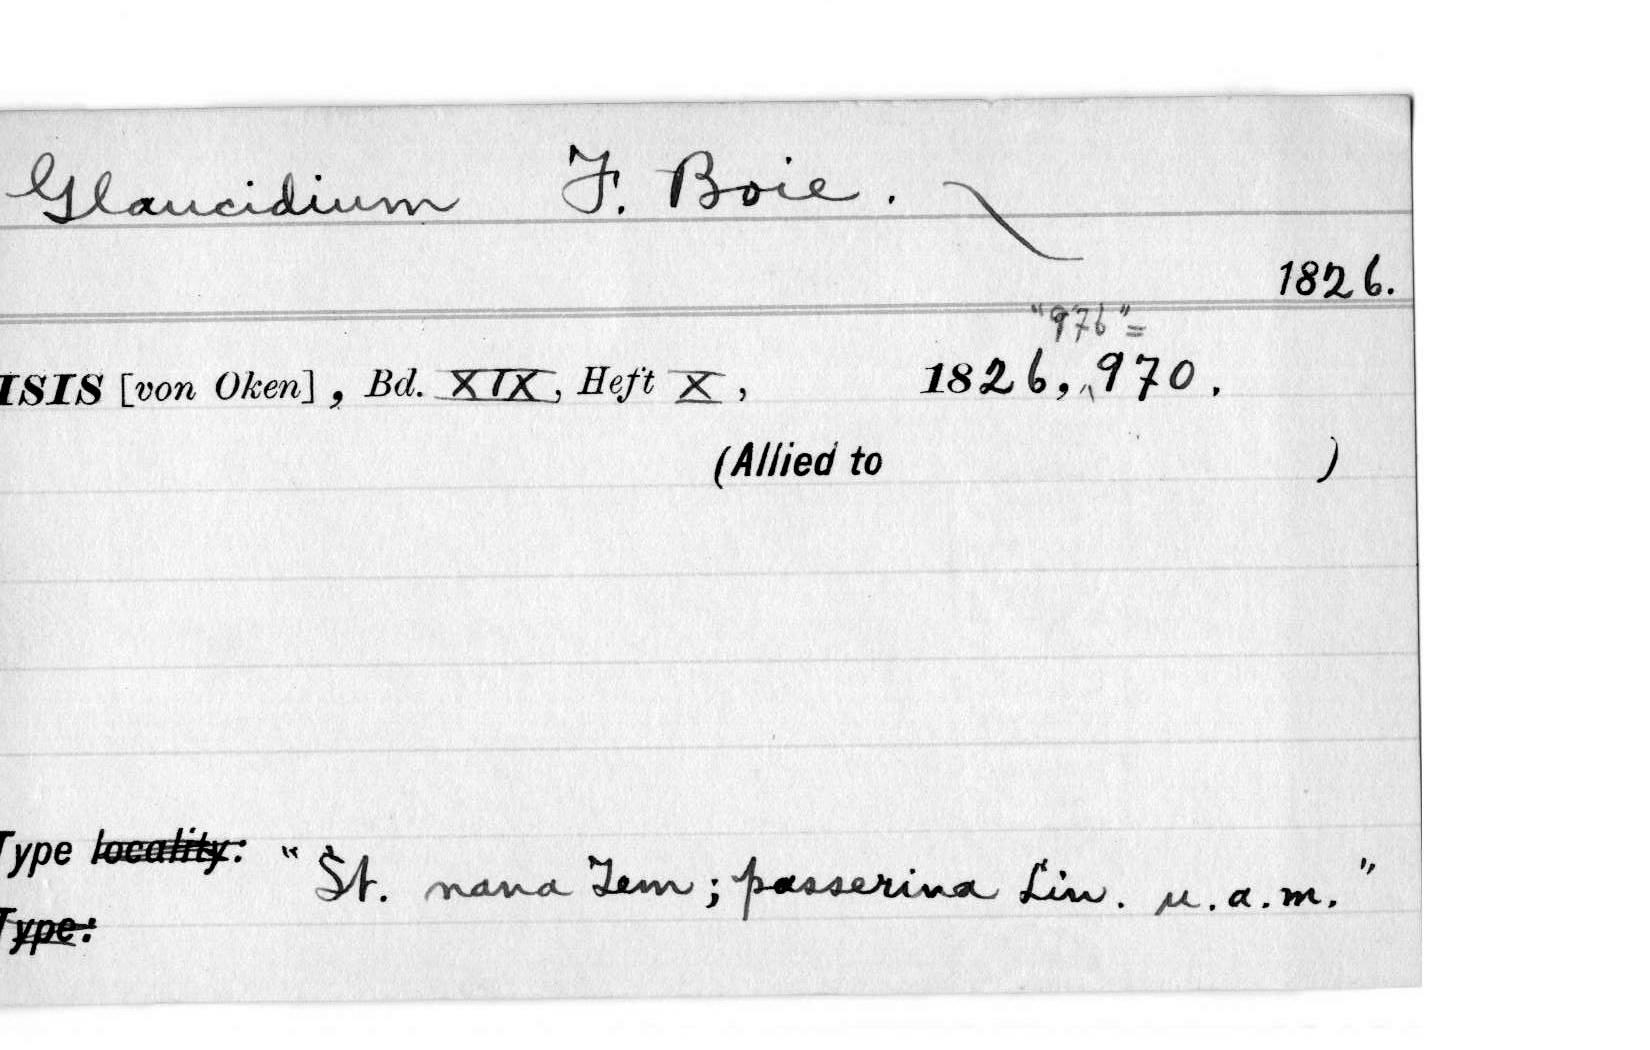 Glaucidium F. Boie.
1826.
"976"=
ISIS [von Oken], Bd. XIX, Heft X, 1826, 970.
(Allied to )
Type locality: "St. nana Tem; passerina Lin. u.a.m."
Type: